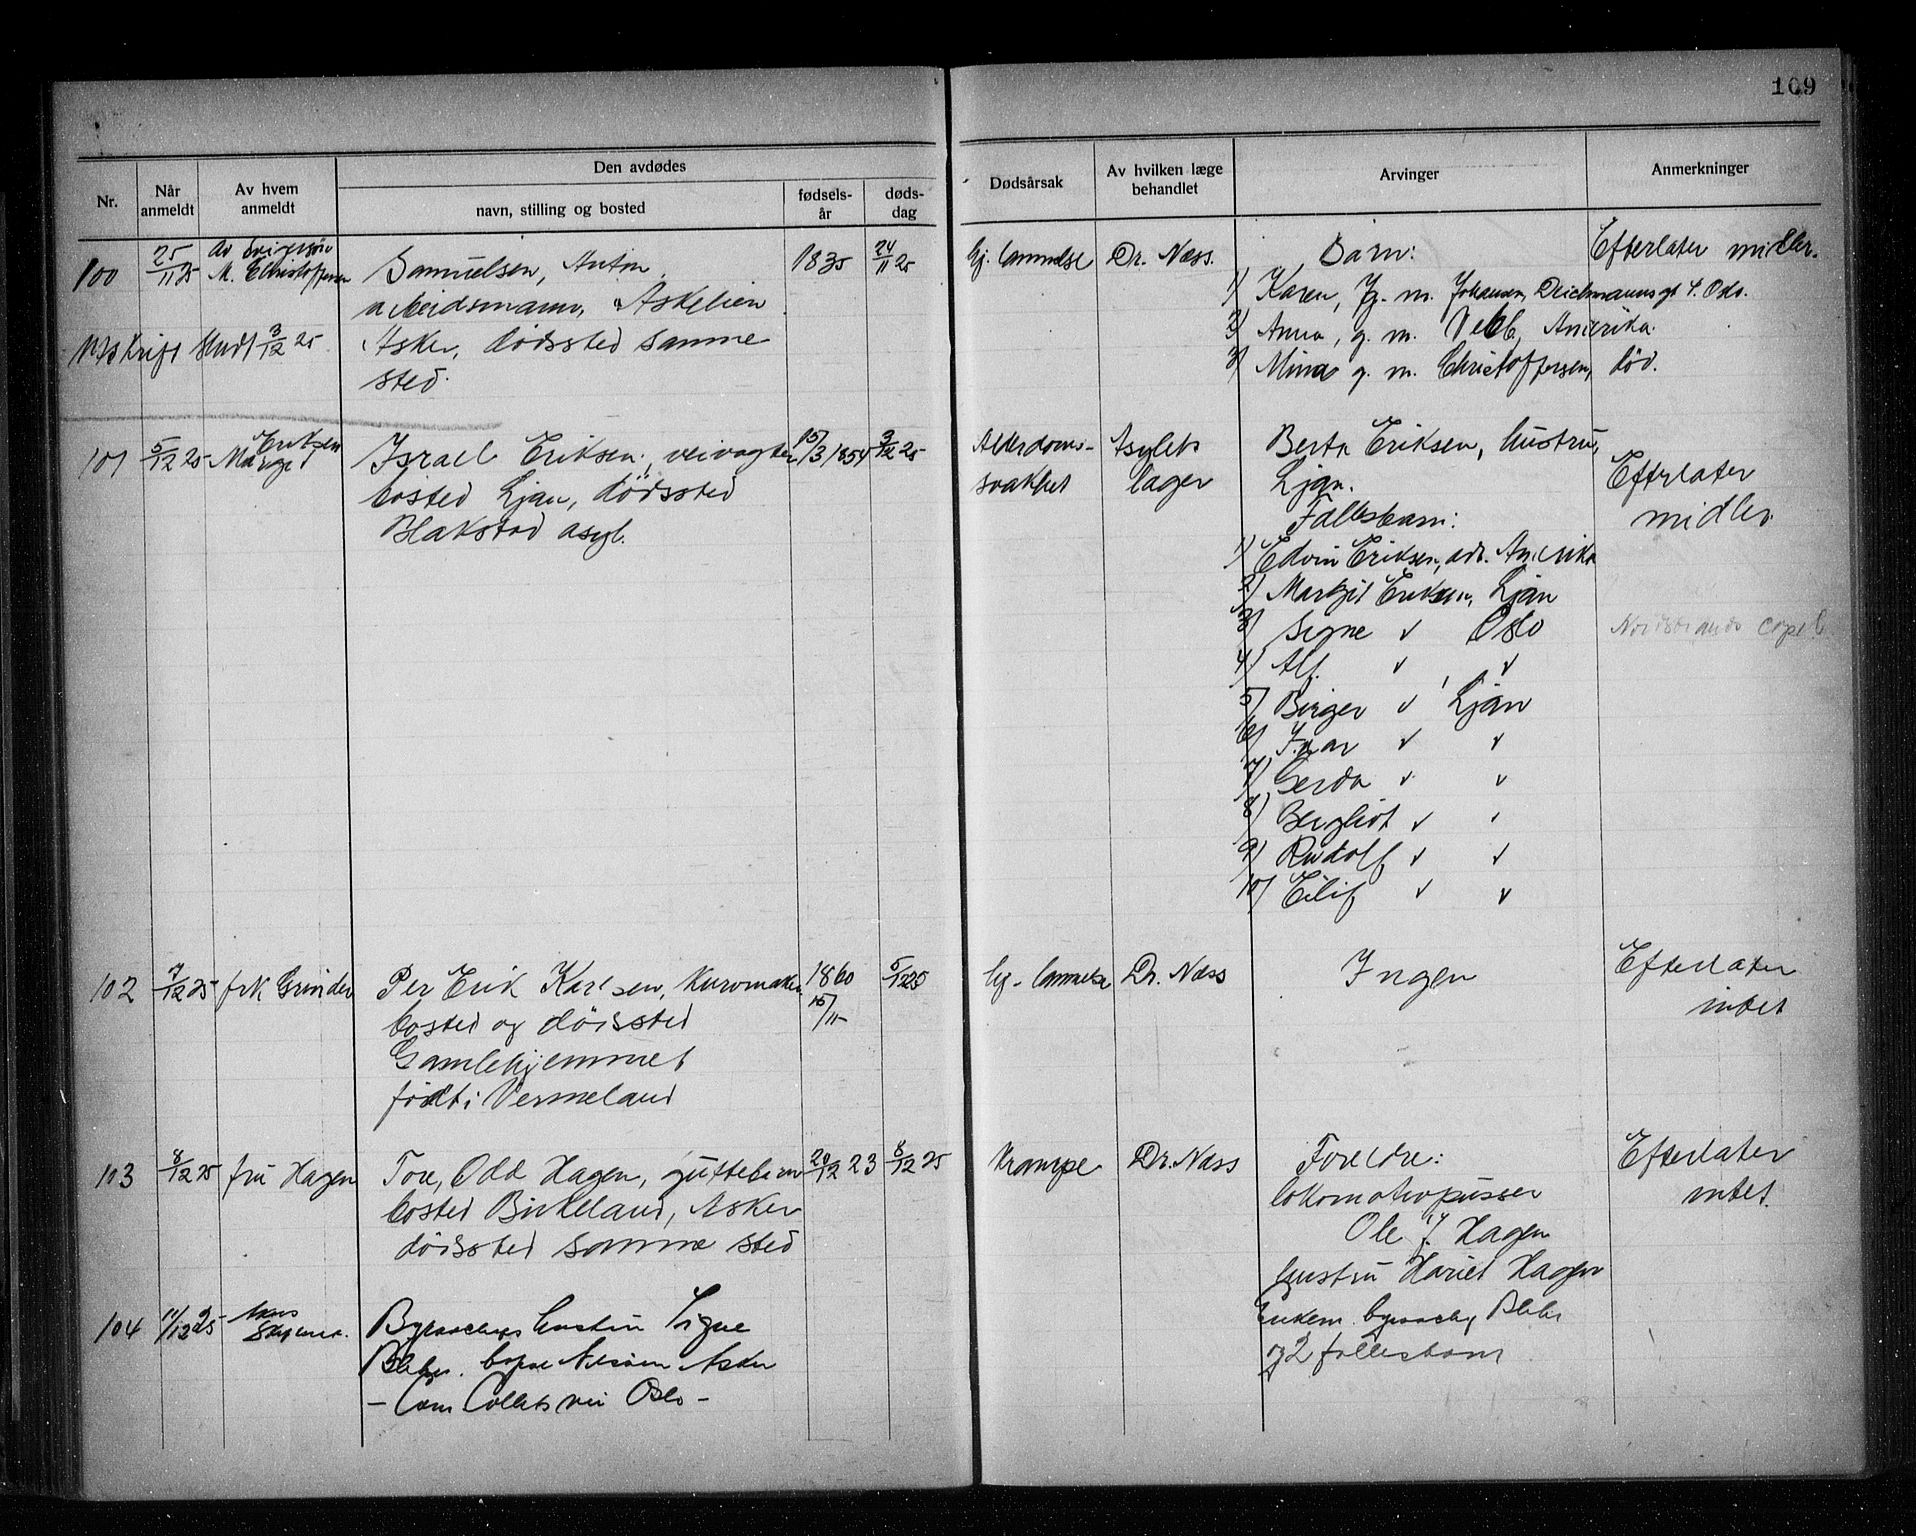 109
Den avdødes
Nr.
Når anmeldt
Av hvem anmeldt
navn, stilling og bosted
fødsels-år
døds-dag
Dødsårsak
Av hvilken læge behandlet
Arvinger
Anmerkninger
100 25/11 25 Av svigersøn M. Christoffersen
Samuelsen, Anton 1835 24/11 25
arbeidsmann, Askelien
Asker, dødssted samme
sted.
Avskrift sendt 3/12 25
Hj. lammelse Dr. Næss.
Barn:
1) Karen, g. m. Johansen, Deichmannsgt 4. Oslo.
2) Anna, g. m. Vebb, Amerika.
3) Mina g. m. Christoffersen, død.
Efterlater midler.
101 5/12 25 Margit Eriksen
Israel Eriksen, veivogter 15/3 1854 3/12 25
bosted Ljan, dødssted
Blakstad asyl.
Alderdoms-
svakhet
Asylets
læger
Berta Eriksen, hustru,
Ljan.
Fællesbarn:
1) Edvin Eriksen, adr. Amerika
2) Margit Eriksen, Ljan
3) Signe v Oslo
4) Alf. v v
5) Birger v Ljan
6) Ivar v v
7) Gerda v v
8) Bergliot v v
9) Rudolf v v
10) Eilif v v
Efterlater
midler.
Nordstrands
102 7/12 25 frk Grinder
Per Erik Karlsen, kurvmaker 1860 15/11 5/12 25
bosted og dødssted
Gamlehjemmet
født i Vermeland
Hj. lammelse Dr. Næss
Ingen
Efterlater
intet
103 8/12 25 fru Hagen
Tore, Odd Hagen, guttebarn 20/12 23 6/12 25
bosted Birkeland, Asker
dødssted samme sted
Krampe Dr. Næss
Foreldre:
lokomotivpusser
Ole J. Hagen
hustru Hariet Hagen
Efterlater
intet.
104 11/12 25
hustru Signe
Asker
Oslo -
Enkem.
og 2 fællesbarn